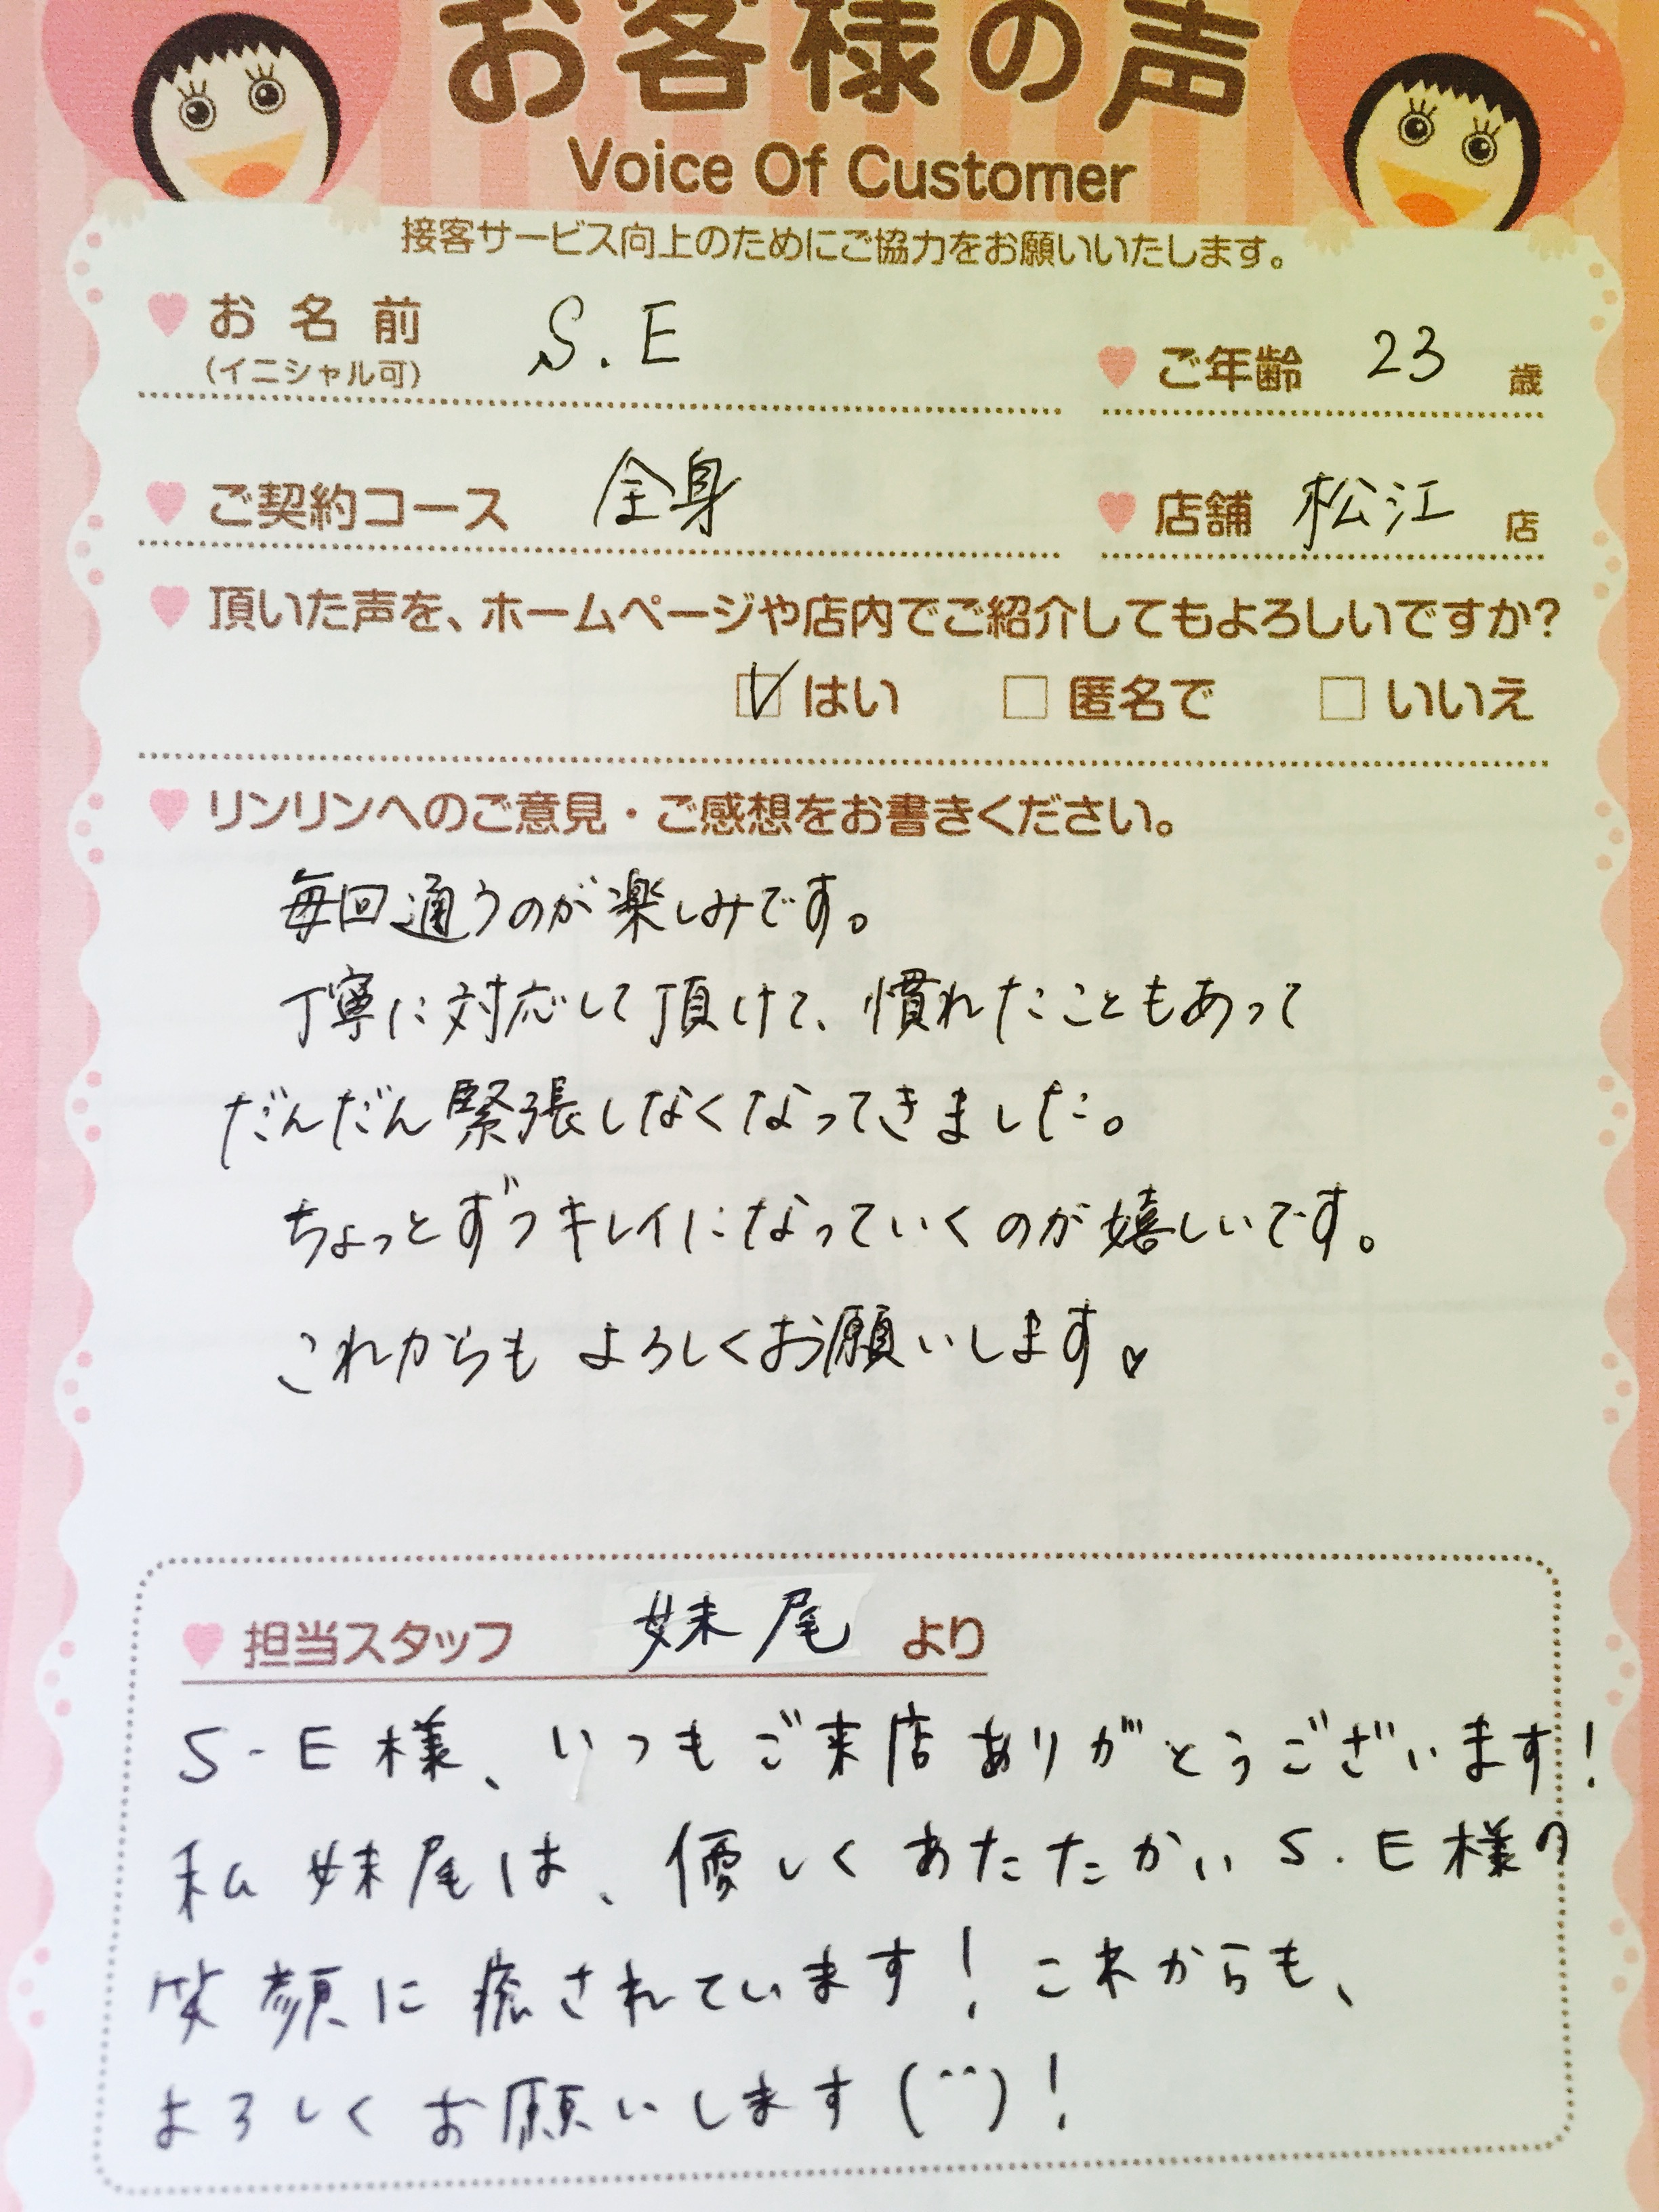 お客様の声
Voice Of Customer
接客サービス向上のためにご協力をお願いいたします。
お名前 S.E
(イニシャル可)
ご年齢 23 歳
ご契約コース 全身
店舗 松江 店
頂いた声を、ホームページや店内でご紹介してもよろしいですか?
はい 匿名で いいえ
リンリンへのご意見・ご感想をお書きください。
毎回通うのが楽しみです。
丁寧に対応して頂けて、慣れたこともあって
だんだん緊張しなくなってきました。
ちょっとずつキレイになっていくのが嬉しいです。
これからもよろしくお願いします♡
担当スタッフ 妹尾 より
S.E様、いつもご来店ありがとうございます!
私妹尾は、優しくあたたかいS.E様の
笑顔に癒されています!これからも、
よろしくお願いします(^^)!